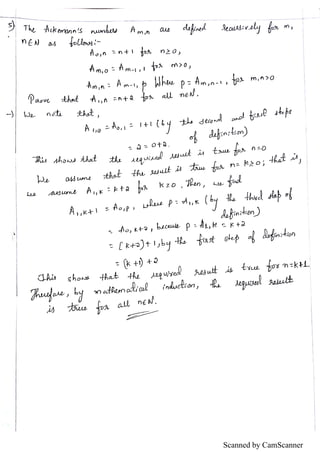 5) The Ackermann's numbers A m,n are defined recursively for m,
n∈N as follows:-
A₀,n = n+1 for n≥0,
Am,0 = Am-1, 1 for m>0,
Am,n = Am-1, p where p = Am,n-1, for m,n>0
Prove that A₁,n = n+2 for all n∈N.
→) We note that,
A₁,₀ = A₀,₁ = 1+1 (by the second and first steps
of definition)
= 2 = 0+2.
This shows that the required result is true for n=0
We assume that the result is true for n=k≥0; that is,
we assume A₁,k = k+2 for k≥0, Then, we find
A₁,k+1 = A₀,p, where p = A₁,k (by the third step of
definition)
= A₀,k+2, because p = A₁,k = k+2
= (k+2)+1, by the first step of definition
= (k+1)+2
This shows that the required result is true for n=k+1.
Therefore, by mathematical induction, the required result
is true for all n∈N.
Scanned by CamScanner